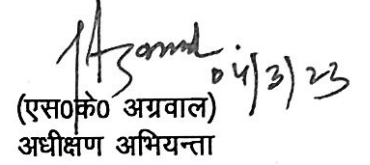 04/3/23
(एस0के0 अग्रवाल)
अधीक्षण अभियन्ता